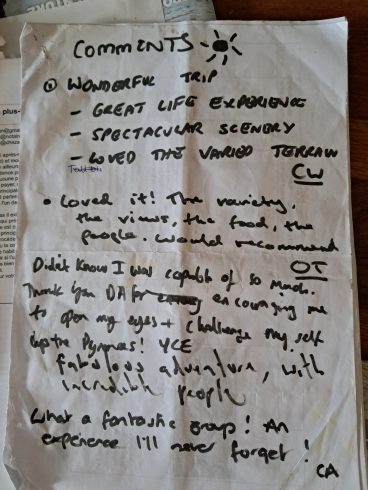 COMMENTS
① WONDERFUL TRIP
- GREAT LIFE EXPERIENCE
- SPECTACULAR SCENERY
- LOVED THE VARIED TERRAIN
CW
• Loved it! The variety,
the views, the food, the
people. Would recommend
OT
Didn't know I was capable of so much.
Thank you DA for encouraging me
to open my eyes + challenge my self
up the Pyrenees! YCE
fabulous adventure, with
incredible people
What a fantastic group! An
experience I'll never forget!
CA